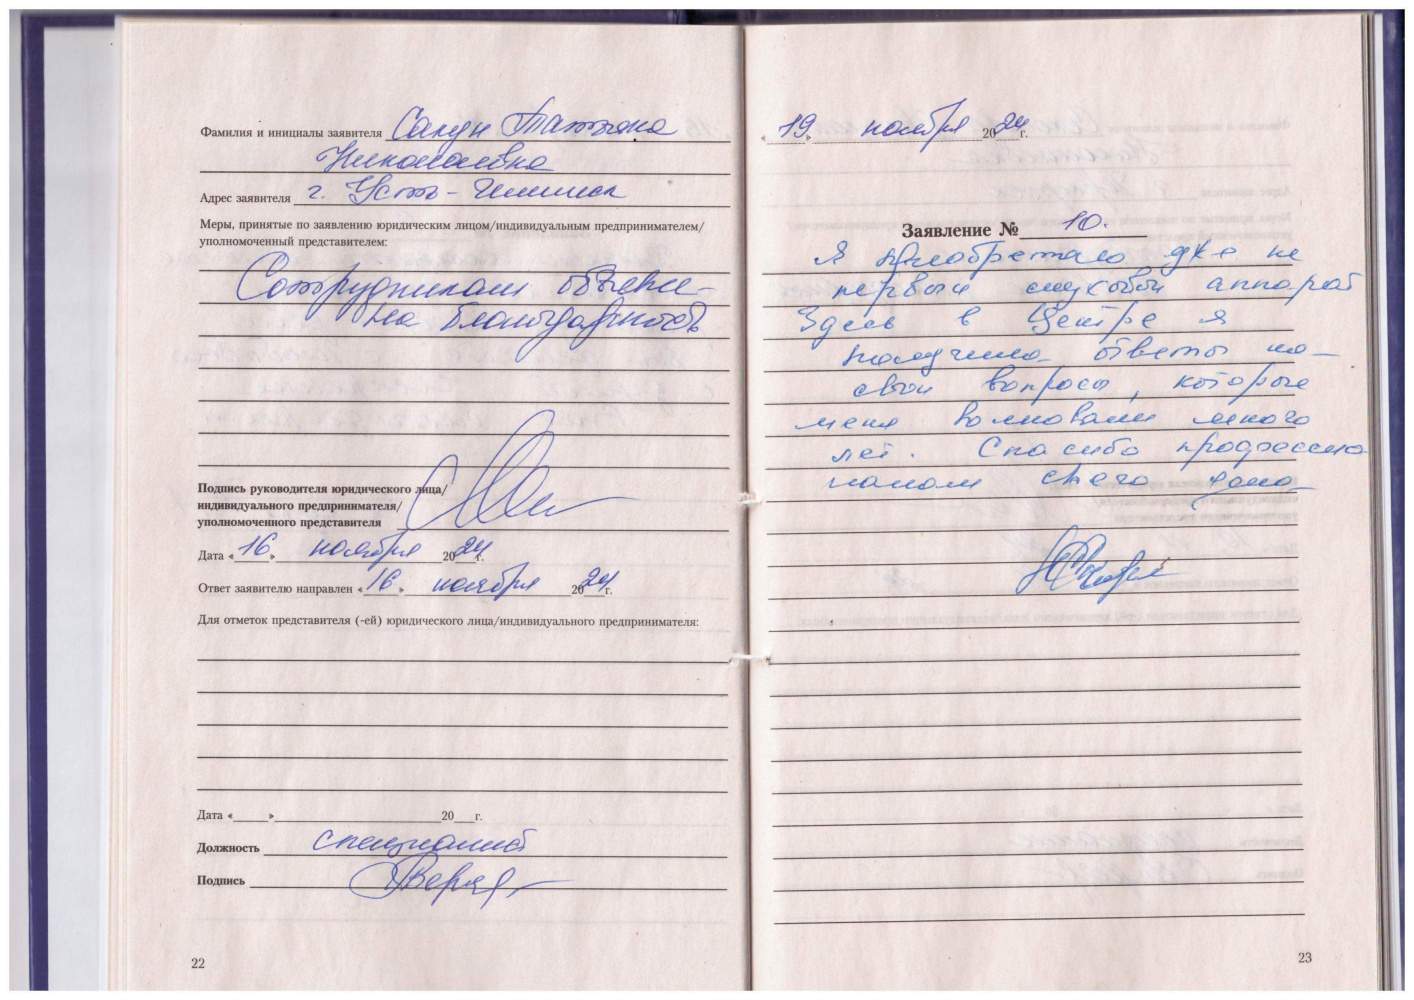 Фамилия и инициалы заявителя Сакун Татьяна
Николаевна
Адрес заявителя г. Усть-Илимск
Меры, принятые по заявлению юридическим лицом/индивидуальным предпринимателем/
уполномоченный представителем:
Сотрудникам объявле-
на благодарность
Подпись руководителя юридического лица/
индивидуального предпринимателя/
уполномоченного представителя
Дата «16» ноября 2024г.
Ответ заявителю направлен «16» ноября 2024г.
Для отметок представителя (-ей) юридического лица/индивидуального предпринимателя:
Дата «____»____20__г.
Должность специалист
Подпись
22
«19» ноября 2024г.
Заявление № 10.
Я приобретаю уже не
первый слуховой аппарат
Здесь в Центре я
получила ответы на
свои вопросы, которые
меня волновали много
лет. Спасибо профессио
налам своего дела
23